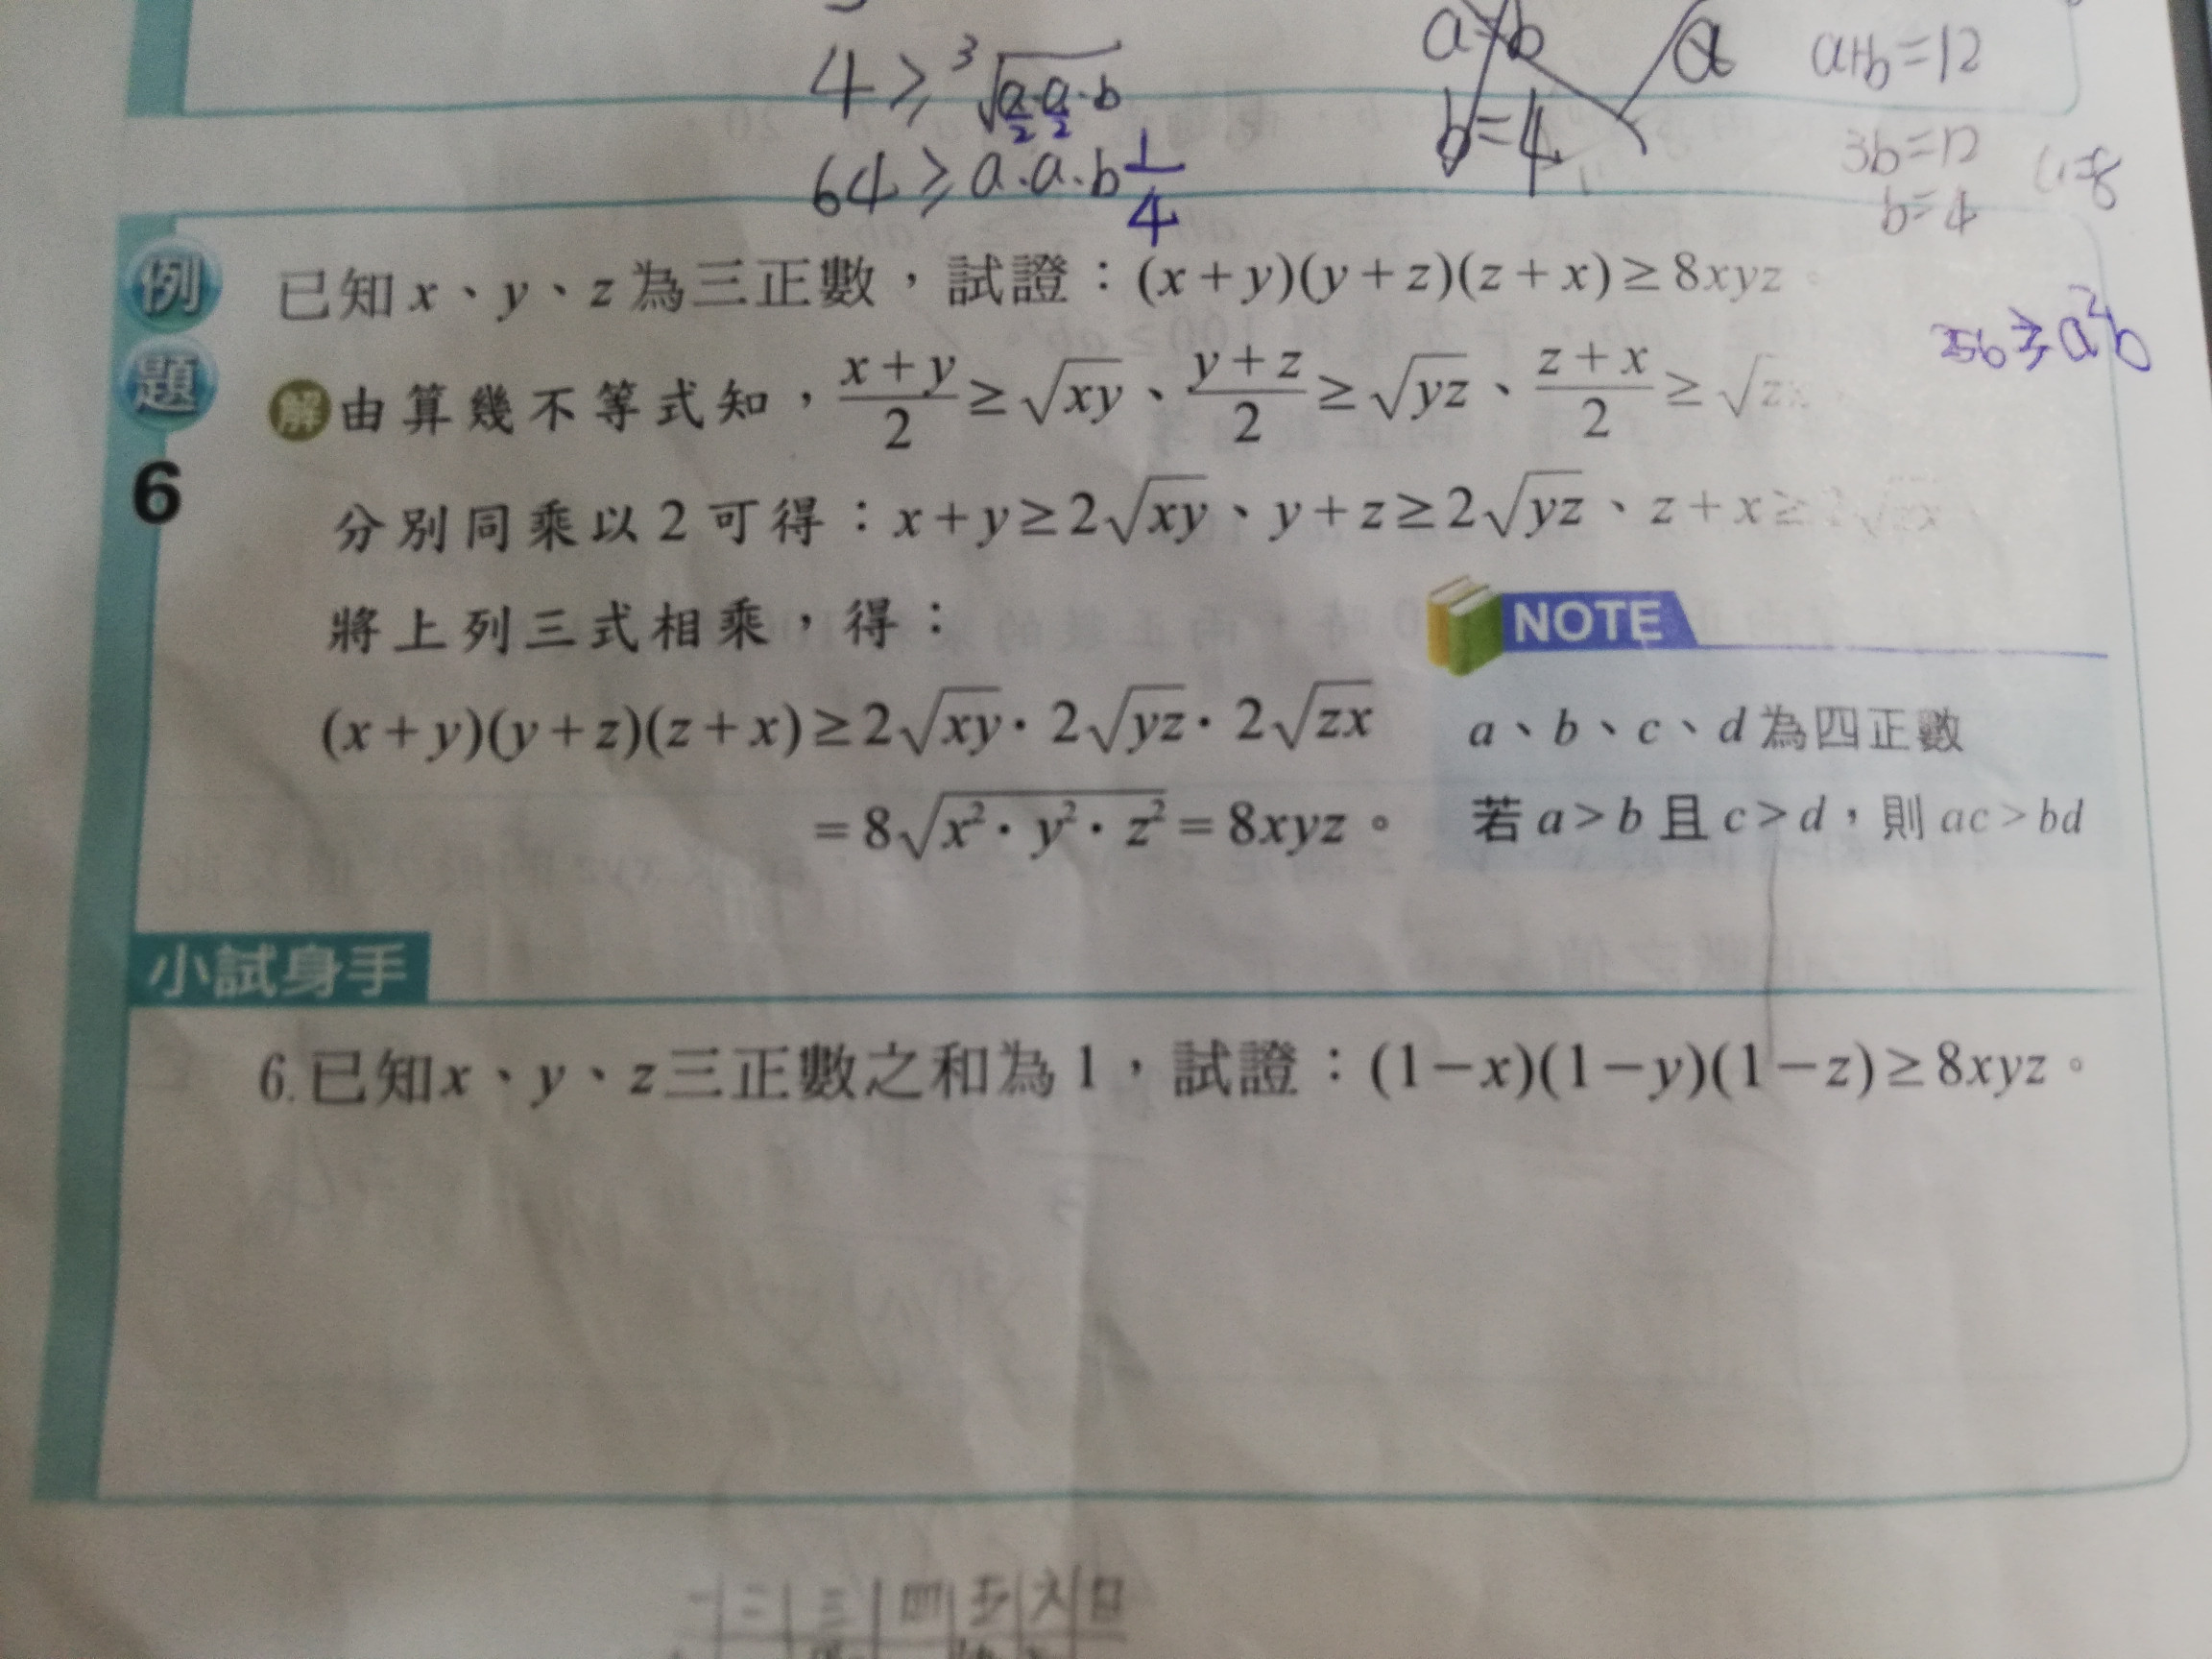 4 ≥ ³√(a/2·a/2·b)
a=b a a+b=12
b=4 3b=12
64 ≥ a·a·b 1/4 b=4
例題6
已知x、y、z為三正數，試證：(x+y)(y+z)(z+x)≥8xyz。
≥a²b
解 由算幾不等式知，(x+y)/2≥√xy、(y+z)/2≥√yz、(z+x)/2≥√zx
分別同乘以2可得：x+y≥2√xy、y+z≥2√yz、z+x≥2√zx
將上列三式相乘，得：
(x+y)(y+z)(z+x)≥2√xy·2√yz·2√zx
=8√(x²·y²·z²)=8xyz。
NOTE
a、b、c、d為四正數
若a>b且c>d，則ac>bd
小試身手
6.已知x、y、z三正數之和為1，試證：(1−x)(1−y)(1−z)≥8xyz。
一 二 三 四 五 六 日